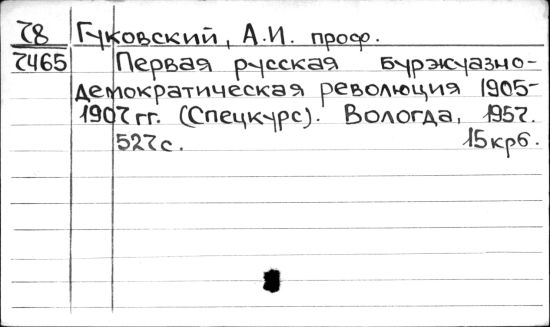 78 Гуковский, А.И. проф.
7465 Первая русская буржуазно-
демократическая революция 1905-
1907 гг. (Спецкурс). Вологда, 1957.
527с. 15крб.